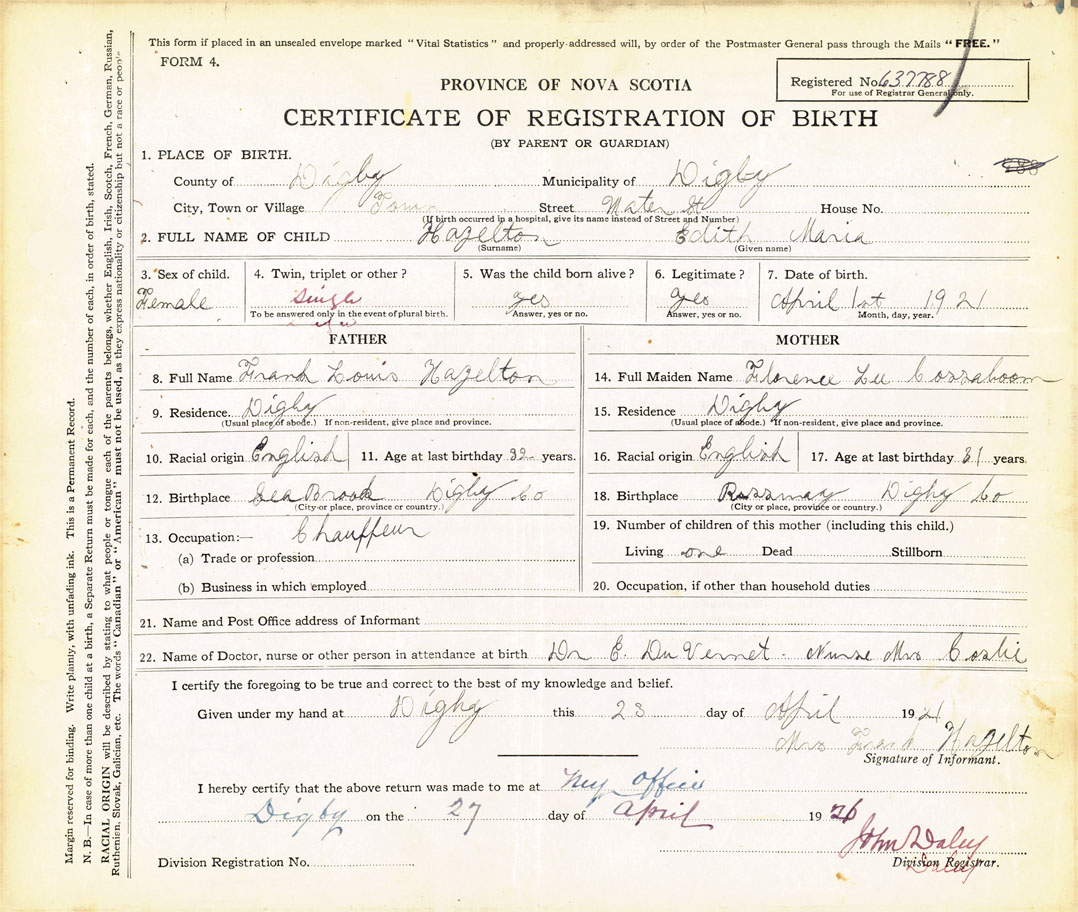 This form if placed in an unsealed envelope marked "Vital Statistics" and properly addressed will, by order of the Postmaster General pass through the Mails "FREE."
FORM 4.
PROVINCE OF NOVA SCOTIA
Registered No. 637788
For use of Registrar General only.
CERTIFICATE OF REGISTRATION OF BIRTH
(BY PARENT OR GUARDIAN)
1. PLACE OF BIRTH.
County of Digby Municipality of Digby
City, Town or Village Town Street Water St House No.
(If birth occurred in a hospital, give its name instead of Street and Number)
2. FULL NAME OF CHILD Hazelton Edith Maria
(Surname) (Given name)
3. Sex of child. 4. Twin, triplet or other? 5. Was the child born alive? 6. Legitimate? 7. Date of birth.
Female Single yes yes April 1st 1921
To be answered only in the event of plural birth. Answer, yes or no. Answer, yes or no. Month, day, year.
FATHER
8. Full Name Frank Louis Hazelton
9. Residence. Digby
(Usual place of abode.) If non-resident, give place and province.
10. Racial origin English 11. Age at last birthday 32 years.
12. Birthplace Sea Brook Digby Co
(City or place, province or country.)
13. Occupation:— Chauffeur
(a) Trade or profession
(b) Business in which employed
MOTHER
14. Full Maiden Name Florence Lee Cossaboom
15. Residence Digby
(Usual place of abode.) If non-resident, give place and province.
16. Racial origin English 17. Age at last birthday 31 years.
18. Birthplace Rossway Digby Co
(City or place, province or country.)
19. Number of children of this mother (including this child.)
Living one Dead Stillborn
20. Occupation, if other than household duties
21. Name and Post Office address of Informant
22. Name of Doctor, nurse or other person in attendance at birth Dr E. Du Vernet - Nurse Mrs
I certify the foregoing to be true and correct to the best of my knowledge and belief.
Given under my hand at Digby this 23 day of April 1921
Mrs Frank Hazelton
Signature of Informant.
I hereby certify that the above return was made to me at My office
Digby on the 27 day of April 19
John Daley
Division Registrar.
Daley
Division Registration No.
Margin reserved for binding. Write plainly, with unfading ink. This is a Permanent Record.
N. B.—In case of more than one child at a birth, a Separate Return must be made for each, and the number of each, in order of birth, stated.
RACIAL ORIGIN will be described by stating to what people or tongue each of the parents belongs, whether English, Irish, Scotch, French, German, Russian,
Ruthenian, Slovak, Galician, etc. The words "Canadian" or "American" must not be used, as they express nationality or citizenship but not a race or people